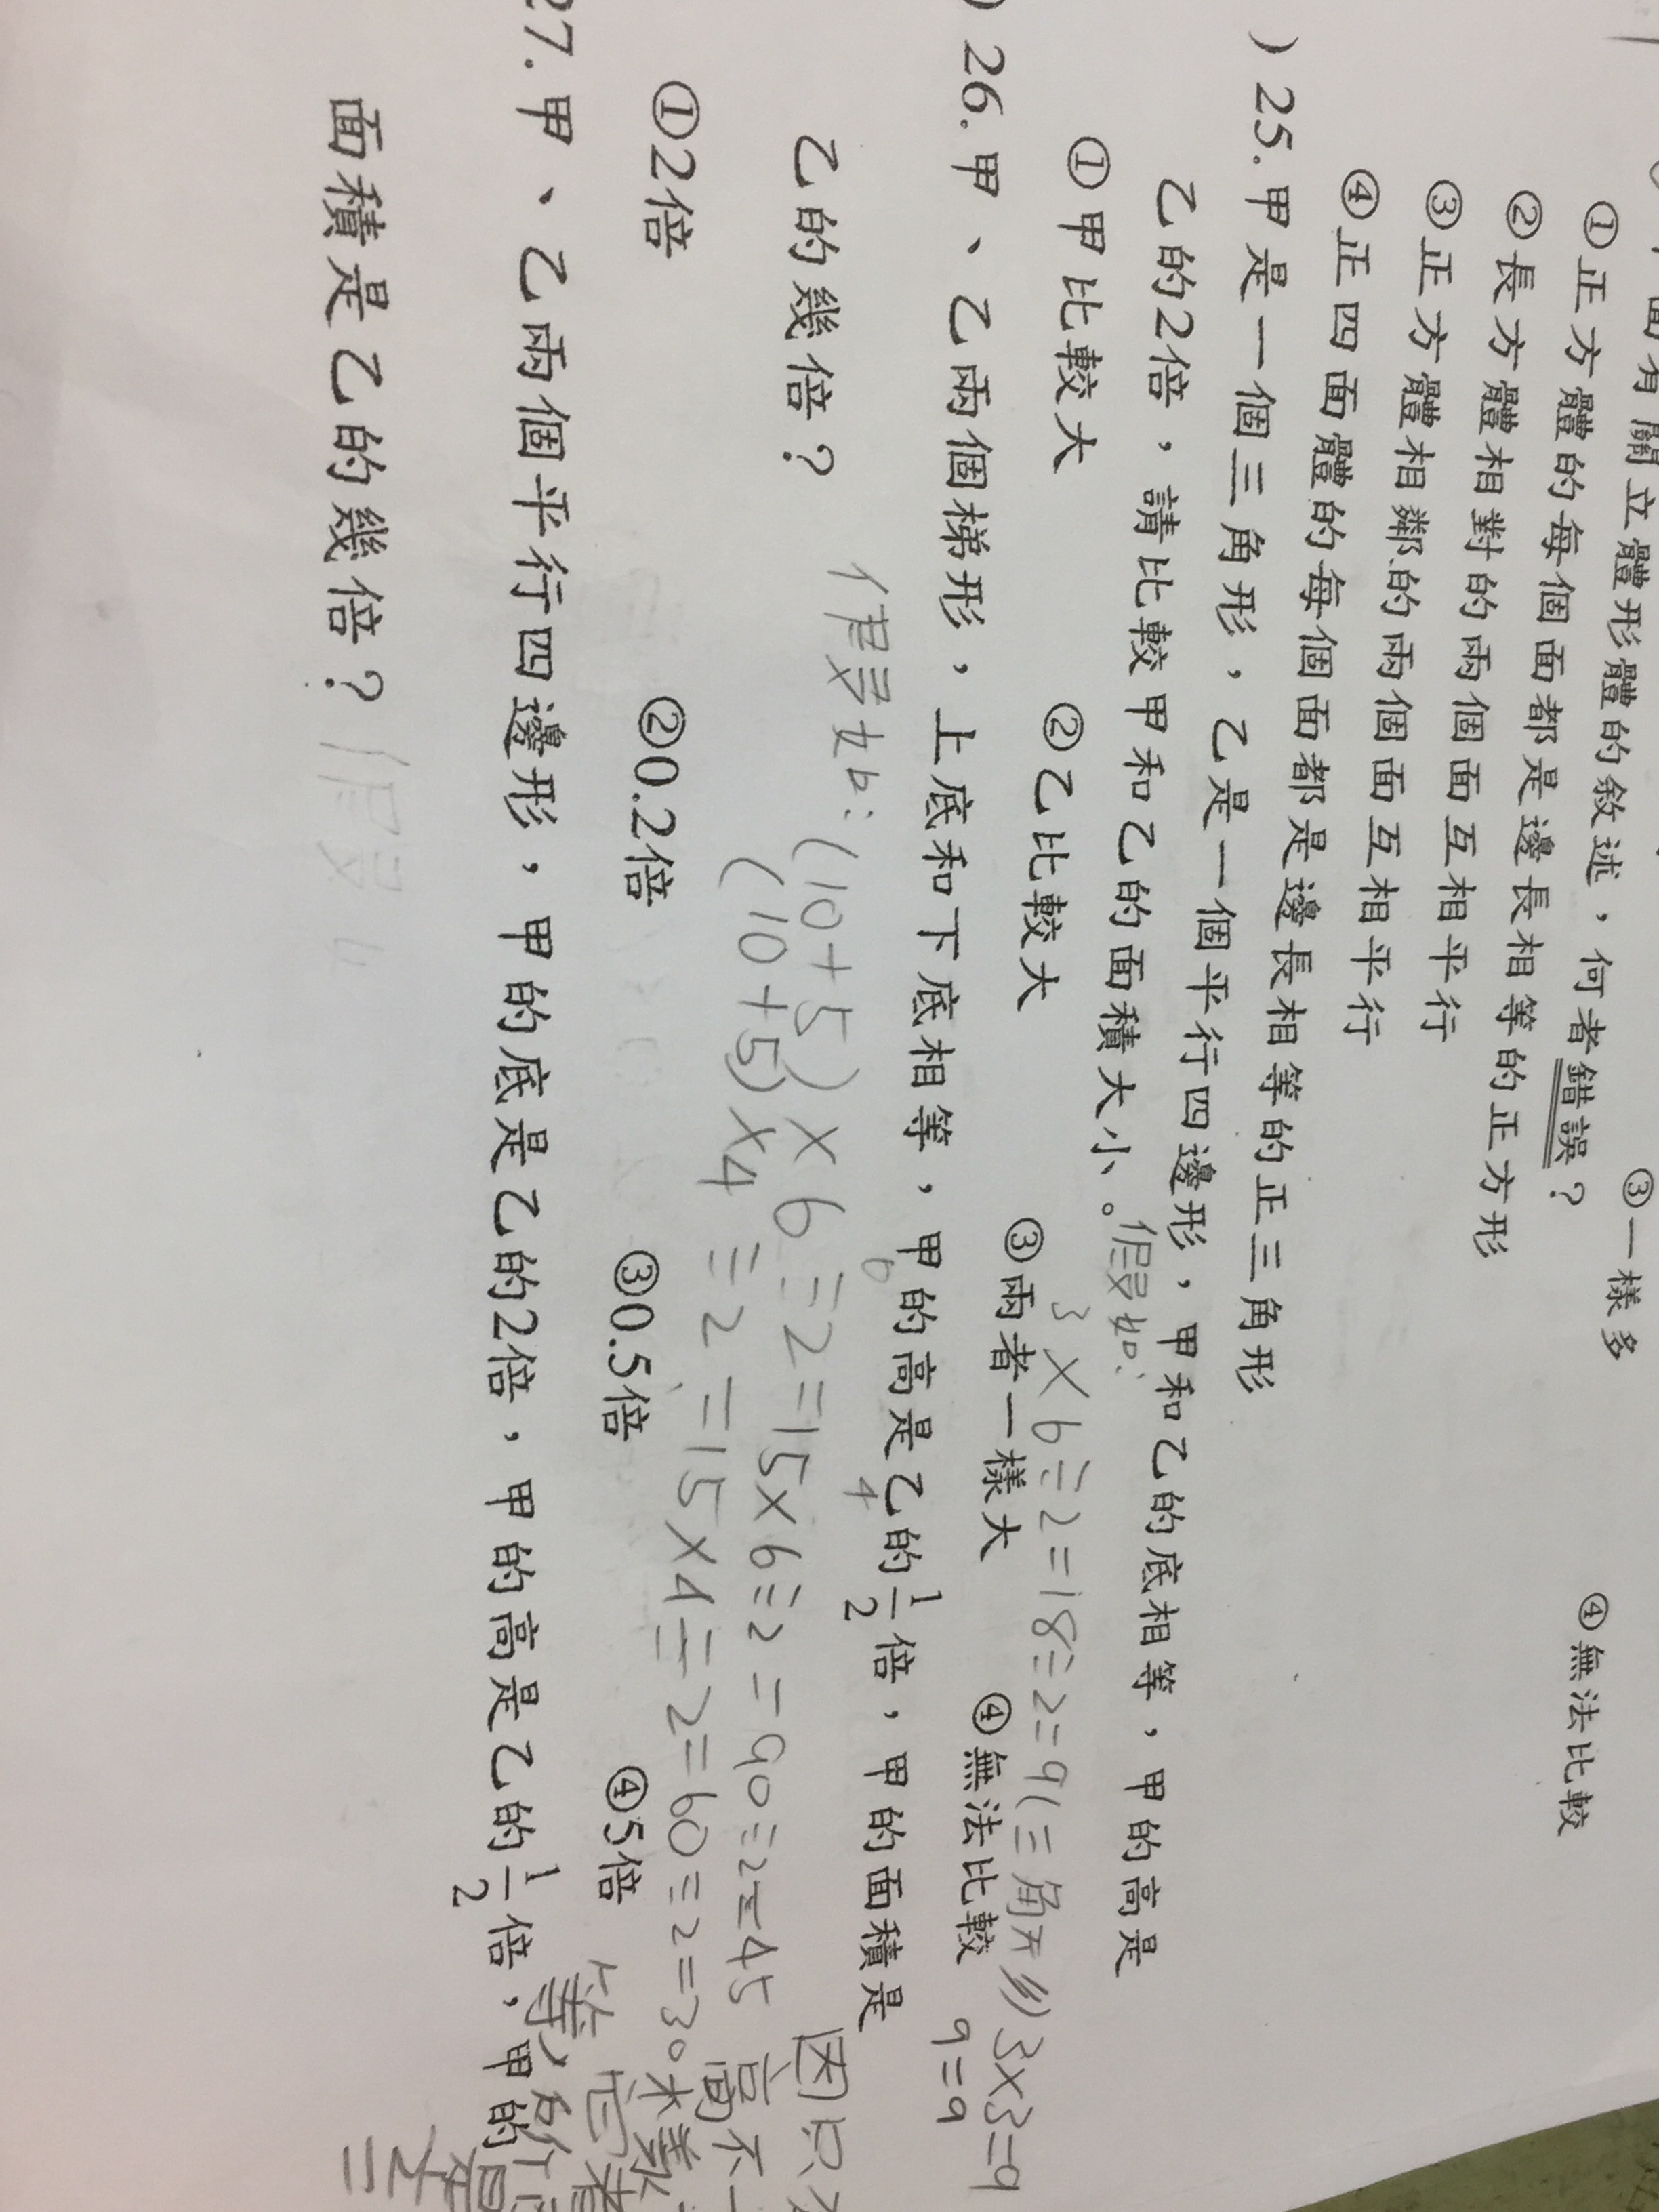 ③一樣多 ④無法比較
面有關立體形體的敘述，何者錯誤？
①正方體的每個面都是邊長相等的正方形
②長方體相對的兩個面互相平行
③正方體相鄰的兩個面互相平行
④正四面體的每個面都是邊長相等的正三角形
）25.甲是一個三角形，乙是一個平行四邊形，甲和乙的底相等，甲的高是
乙的2倍，請比較甲和乙的面積大小。假如:
3×6÷2=18÷2=9(三角形)3×3=9
9=9
①甲比較大 ②乙比較大 ③兩者一樣大 ④無法比較
）26.甲、乙兩個梯形，上底和下底相等，甲的高是乙的1/2倍，甲的面積是
6 4
乙的幾倍？
假如:(10+5)×6÷2=15×6÷2=90÷2=45
(10+5)×4÷2=15×4÷2=60÷2=30
因只
高不一
樣
等,所
①2倍 ②0.2倍 ③0.5倍 ④5倍
27.甲、乙兩個平行四邊形，甲的底是乙的2倍，甲的高是乙的1/2倍，甲的
面積是乙的幾倍？